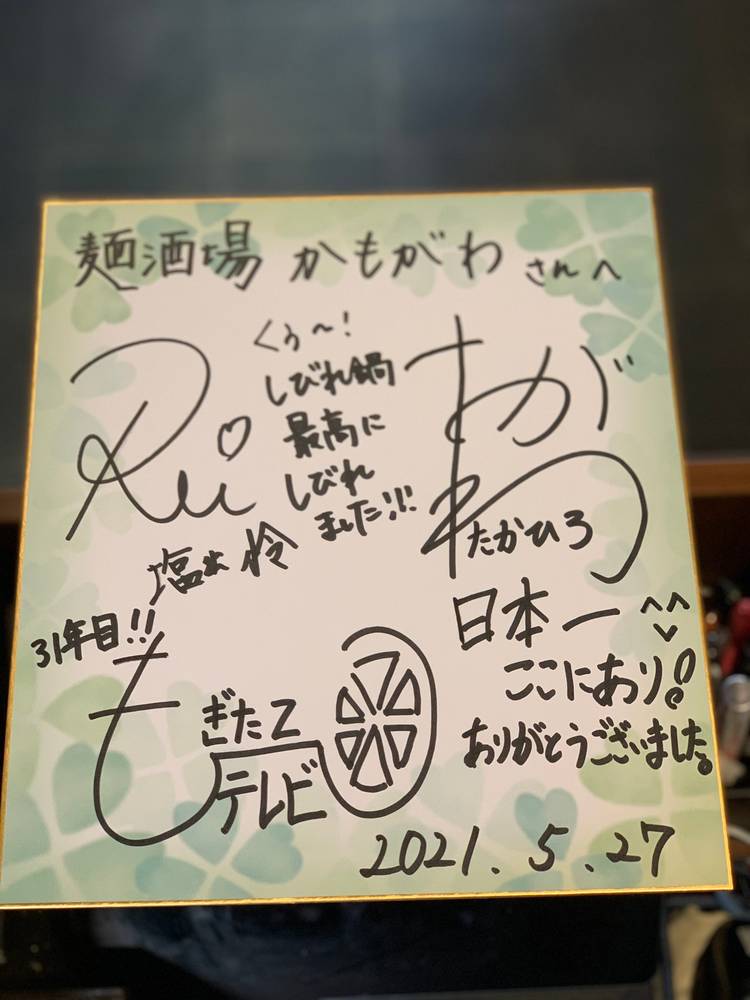 麺酒場 かもがわ さんへ
くぅ〜!
しびれ鍋
最高に
しびれ
ました!!!
Rei
塩出 怜
たかひろ
31年目!!
もぎたて
テレビ
日本一
ここにあり!
ありがとうございました。
2021.5.27